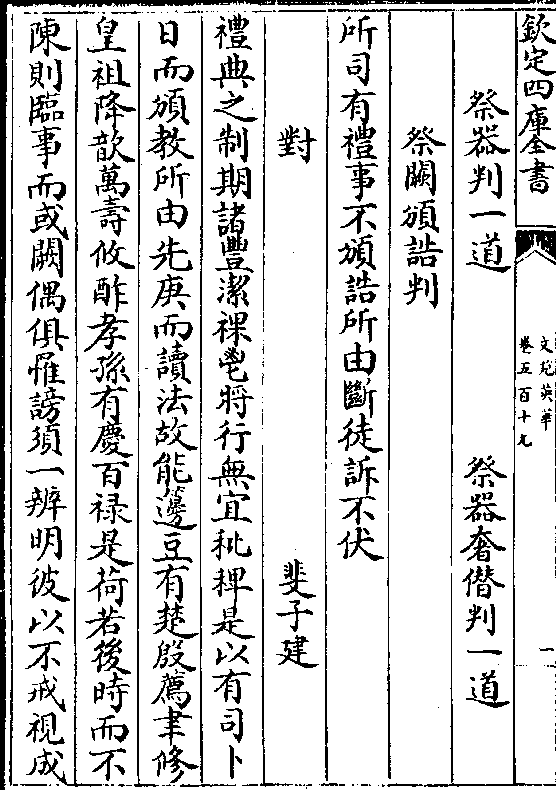 欽定四庫全書
文苑英華
卷五百十九
一
祭器判一道 祭器奢僣判一道
祭闕頒誥判
所司有禮事不頒誥所由斷徒訴不伏
對 斐子建
禮典之制期諸豐潔祼鬯將行無宜秕稗是以有司卜
日而頒教所由先庚而讀法故能籩豆有楚殷薦聿修
皇祖降歆萬壽攸酢孝孫有慶百禄是荷若後時而不
陳則臨事而或闕偶俱罹謗須一辨明彼以不戒視成